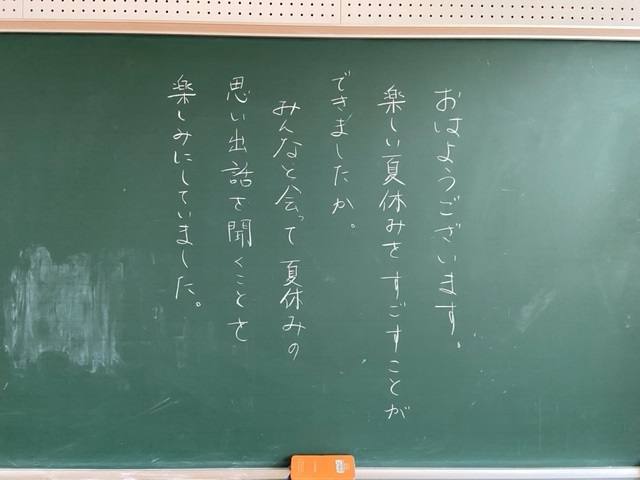 おはようございます。
楽しい夏休みをすごすことが
できましたか。
みんなと会って夏休みの
思い出話を聞くことを
楽しみにしていました。